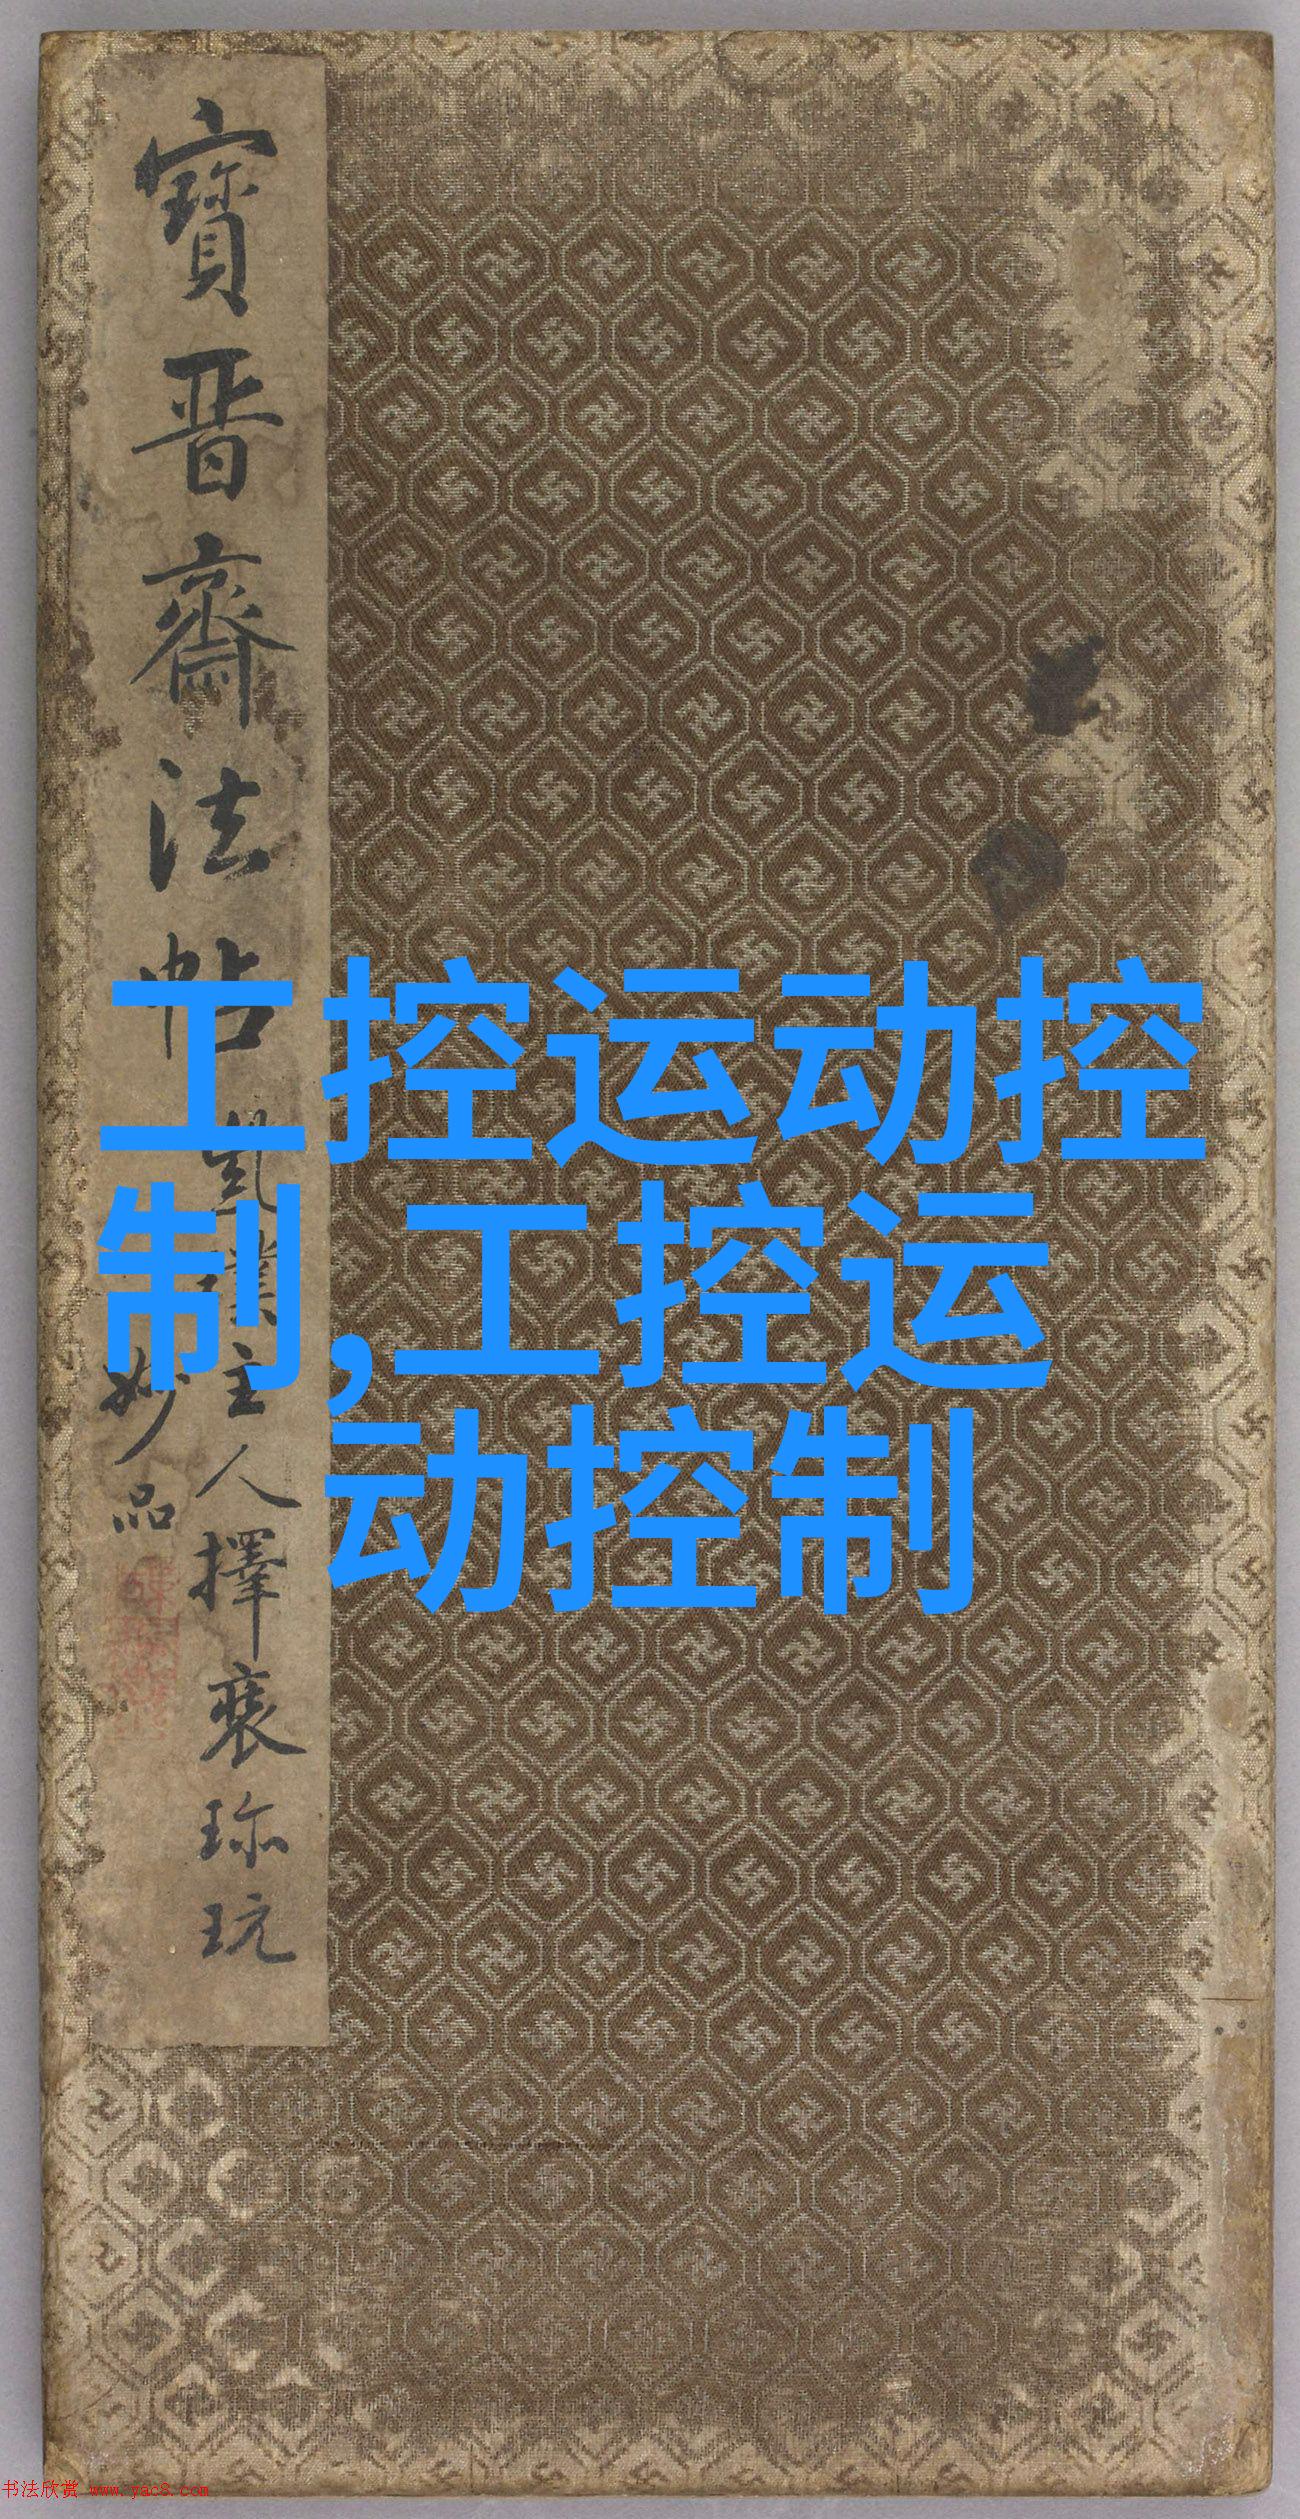 寳晋齋法帖
風滿主人擇裘珎玩
妙品
工控运动控
制,工控运
动控制
书法欣赏 www.yac8.com